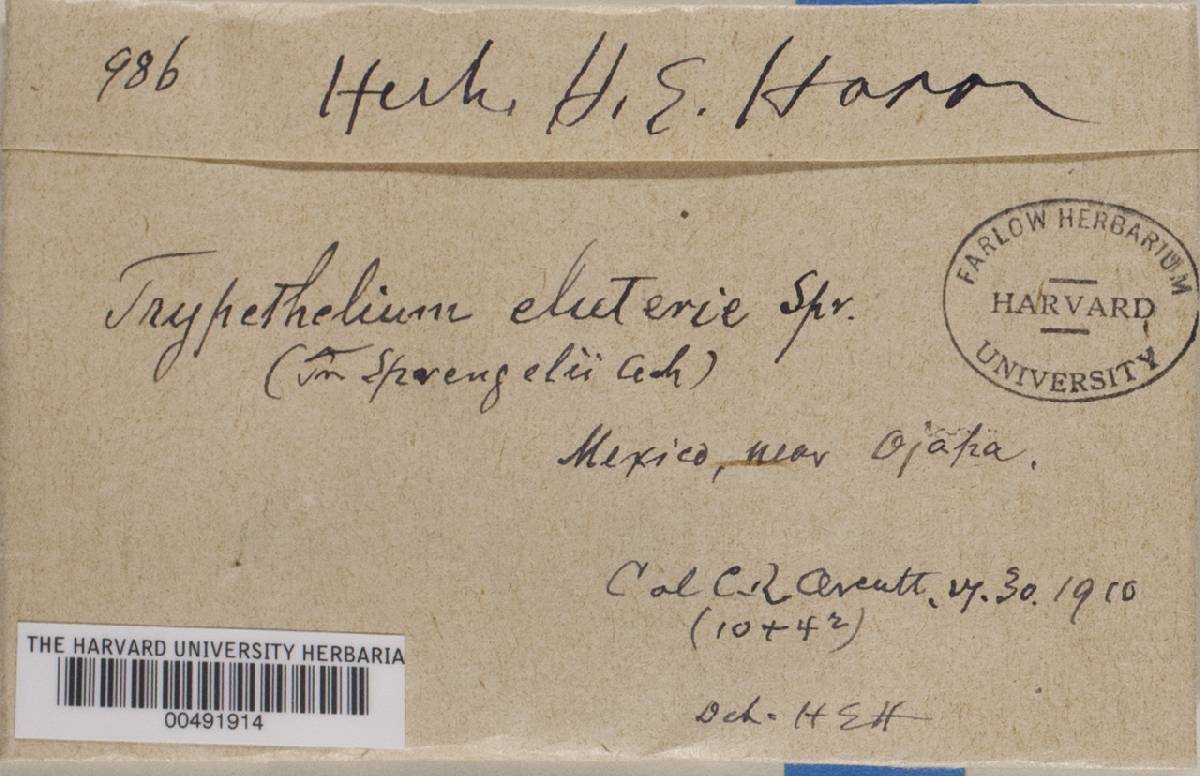 986 Herb. H. E. Hasse
Trypethelium eluterie Spr.
(Tr Sprengelii Ach)
Mexico, near Ojapa.
Col C. R. Orcutt. VI. 30. 1910
Det. H E H
FARLOW HERBARIUM
HARVARD
UNIVERSITY
THE HARVARD UNIVERSITY HERBARIA
00491914